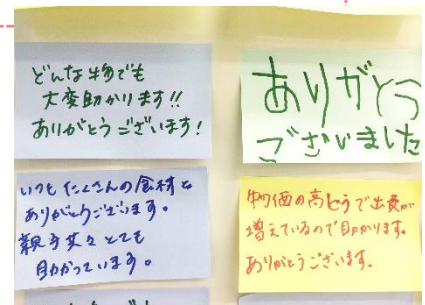 どんな物でも
大変助かります!!
ありがとうございます!
ありがとう
ございました
いつもたくさんの食材を
ありがとうございます。
親子共々とても
助かっています。
物価の高とうで出費が
増えているので助かります。
ありがとうございます。